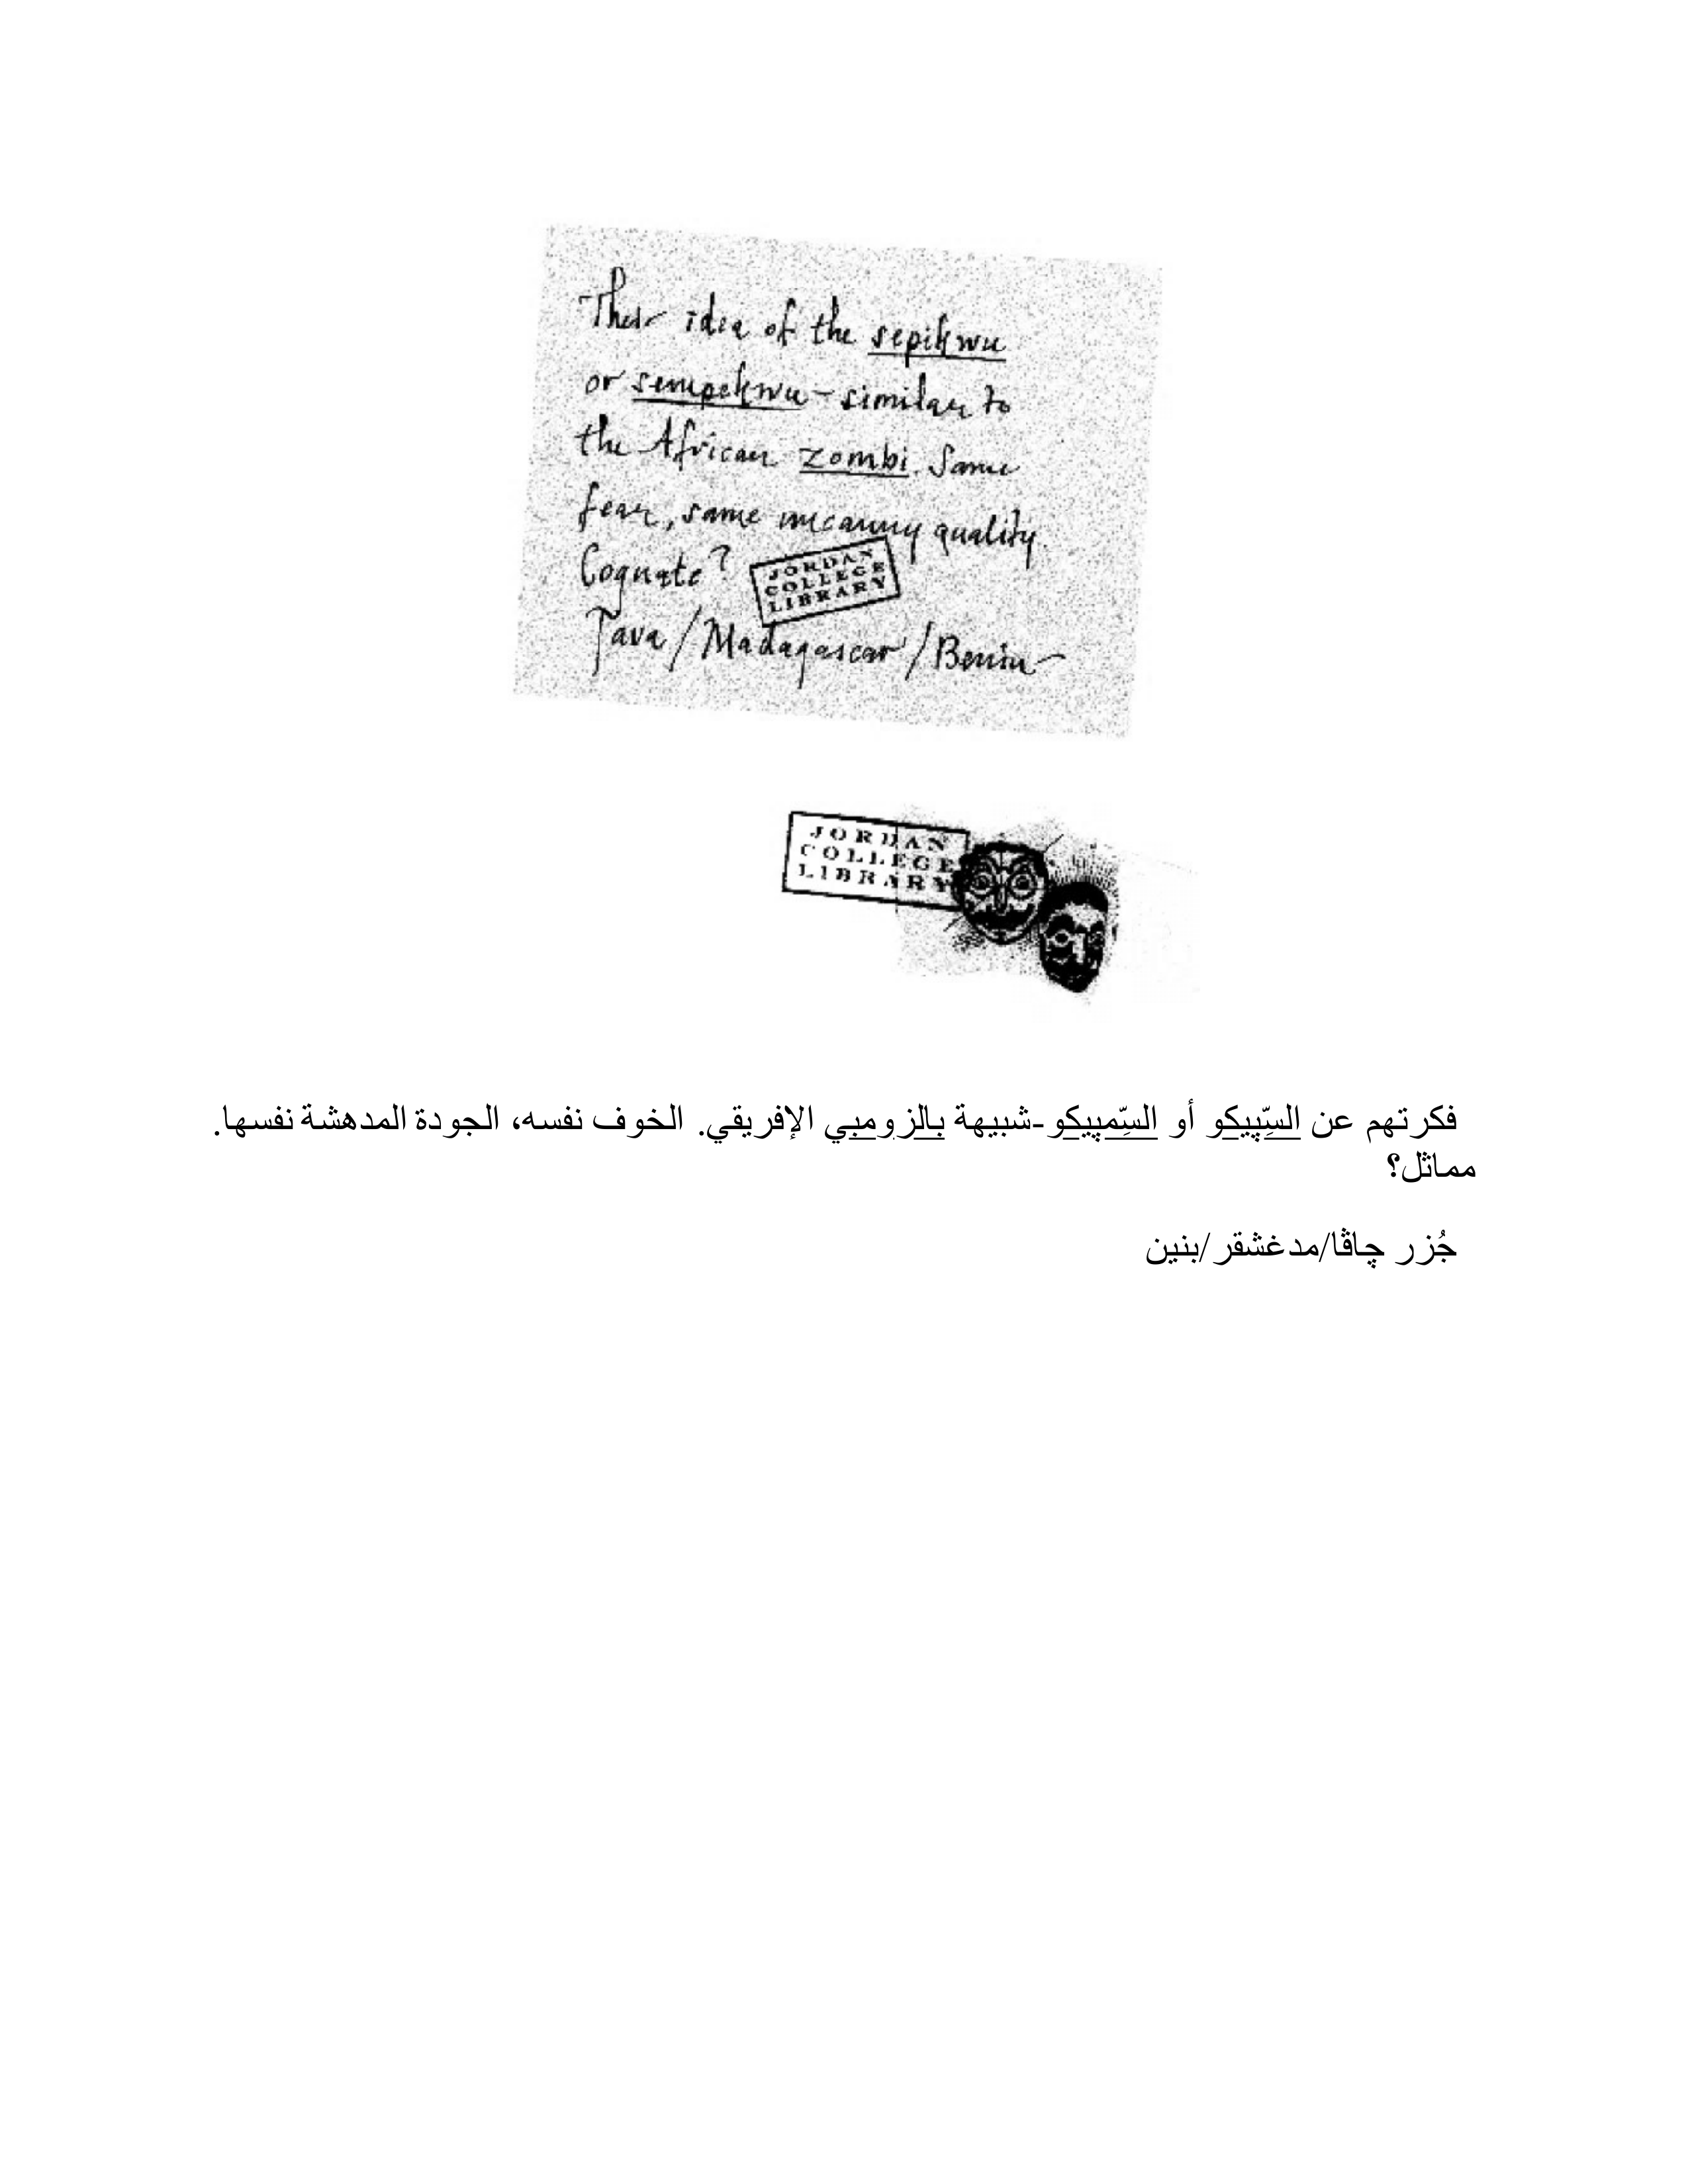 Their idea of the sepikwu
or sempekwu - similar to
the African zombi. Same
fear, same uncanny quality.
Cognate?
JORDAN
COLLEGE
LIBRARY
Java / Madagascar / Benin
JORDAN
COLLEGE
LIBRARY
فكرتهم عن السِّپيكو أو السِّمپيكو-شبيهة بالزومبي الإفريقي. الخوف نفسه، الجودة المدهشة نفسها.
مماثل؟
جُزر چاڤا/مدغشقر/بنين